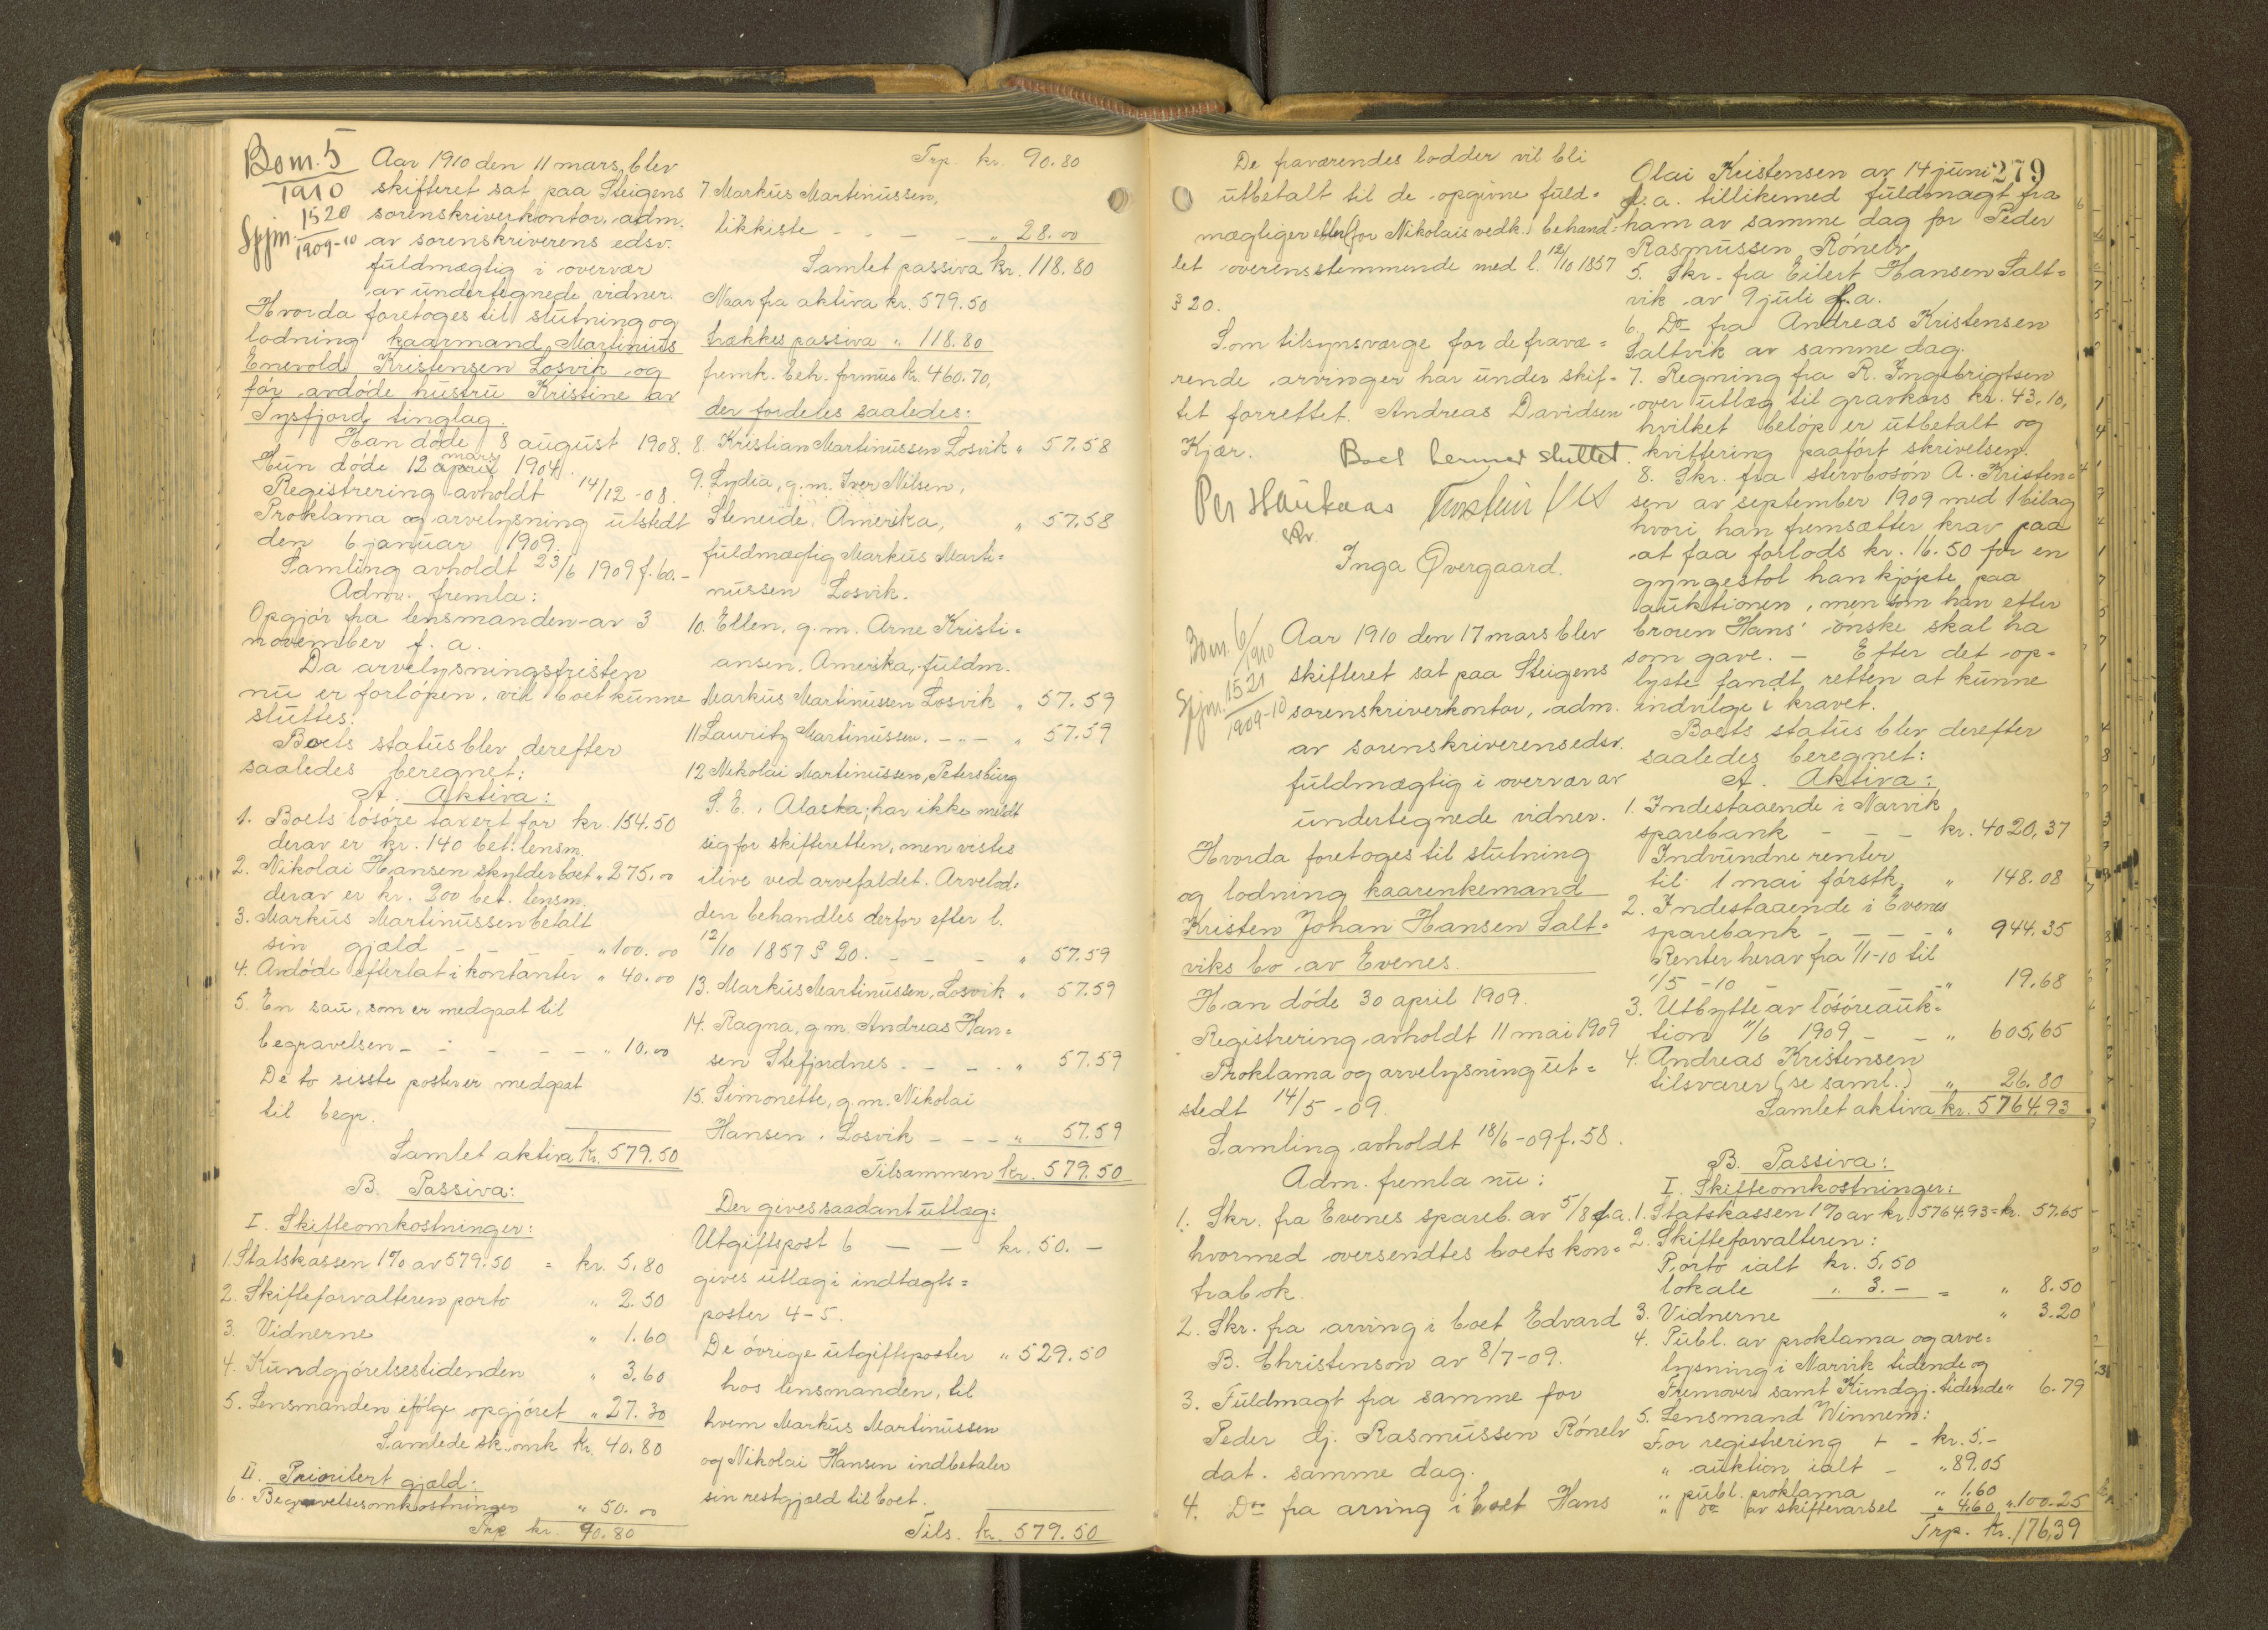 Bom. 5
1910
Sp.jm. 1520
1909-10
Aar 1910 den 11 mars, blev
skifteret sat paa Steigens
sorenskriverkontor, adm.
av sorenskriverens edsv.
fuldmægtig i overvær
av undertegnede vidner.
Hvorda foretoges til slutning og
lodning kaarmand Martinius
Enevold Kristensen Losvik og
før avdøde hustru Kristine av
Tysfjord tinglag.
Han døde 8 august 1908.
Hun døde 12 april mars 1904.
Registrering avholdt 14/12-08.
Proklama og arvelysning utstedt
den 6 januar 1909.
Samling avholdt 23/6 1909 f. 60.-
Adm. fremla:
Opgjør fra lensmanden av 3
november f. a.
Da arvelysningsfristen
nu er forløpen, vil boet kunne
sluttes.
Boets status blev derefter
saaledes beregnet:
A. Aktiva:
1. Boets løsøre taxert for kr. 154.50
derav er kr. 140 bet. lensm.
2. Nikolai Hansen skylder boet " 275.00
derav er kr. 200 bet. lensm.
3. Markus Martinussen betalt
sin gjæld - - " 100.00
4. Avdøde efterlat i kontanter " 40.00
5. En sau, som er medgaat til
begravelsen - - - - - " 10.00
De to sisste poster er medgaat
til begr.
Samlet aktiva kr. 579.50
B. Passiva:
I. Skifteomkostninger:
1. Statskassen 1% av 579.50 = kr. 5.80
2. Skifteforvalteren porto " 2.50
3. Vidnerne " 1.60
4. Kundgjørelsestidenden " 3.60
5. Lensmanden ifølge opgjøret " 27.30
Samlede sk. omk kr. 40.80
II. Prioritert gjæld:
6. Begravelsesomkostninger " 50.00
Trp kr. 90.80
Trp. kr. 90.80
7 Markus Martinussen,
likkiste - - - - " 28.00
Samlet passiva kr. 118.80
Naar fra aktiva kr. 579.50
trækkes passiva " 118.80
fremk. beh. formue kr. 460.70,
der fordeles saaledes:
8 Kristian Martinussen Losvik " 57.58
9. Lydia, g.m. Iver Nilsen,
Steneide, Amerika, " 57.58
fuldmægtig Markus Marti=
nussen Losvik.
10. Ellen, g.m. Arne Kristi=
ansen, Amerika, fuldm.
Markus Martinussen Losvik " 57.59
11 Lauritz Martinussen. - - - " 57.59
12 Nikolai Martinussen, Petersburg
S. E., Alaska; har ikke meldt
sig for skifteretten, men vistes
ilive ved arvefaldet. Arvelod=
den behandles derfor efter l.
12/10 1857 § 20. - - - " 57.59
13. Markus Martinussen, Losvik " 57.59
14. Ragna, g.m. Andreas Han=
sen Stefjordnes - - - - " 57.59
15. Simonette, g.m. Nikolai
Hansen, Losvik - - - " 57.59
Tilsammen kr. 579.50
Der gives saadant utlæg:
Utgiftspost 6 — — kr. 50. -
gives utlæg i indtægts=
poster 4-5.
De øvrige utgiftsposter " 529.50
hos lensmanden, til
hvem Markus Martinussen
og Nikolai Hansen indbetaler
sin restgjæld til boet.
Tils. kr. 579.50
De fraværendes lodder vil bli
utbetalt til de opgivne fuld=
mægtiger eller (for Nikolais vedk.) behand=
let overensstemmende med l. 12/10 1857
§ 20.
Som tilsynsværge for de fravæ=
rende arvinger har under skif=
tet forrettet Andreas Davidsen
Kjær.
Boet hermed sluttet.
Per Haukaas
Inga Øvergaard.
Bom. 6/1910
Sp.jm. 1521
1909-10
Aar 1910 den 17 mars blev
skifteret sat paa Steigens
sorenskriverkontor, adm.
av sorenskriverens edsv.
fuldmægtig i overvær av
undertegnede vidner.
Hvorda foretoges til slutning
og lodning kaarenkemand
Kristen Johan Hansen Salt=
viks bo av Evenes.
Han døde 30 april 1909.
Registrering avholdt 11 mai 1909
Proklama og arvelysning ut=
stedt 14/5-09.
Samling avholdt 18/6-09 f. 58.
Adm. fremla nu:
1. Skr. fra Evenes spareb. av 5/8 f.a.
hvormed oversendtes boets kon=
trabok.
2. Skr. fra arving i boet Edvard
B. Christenson av 8/7-09.
3. Fuldmagt fra samme for
Peder Dj. Rasmussen Rønelv
dat. samme dag.
4. Do fra arving i boet Hans
279
Olai Kristensen av 14 juni
f. a. tillikemed fuldmagt fra
ham av samme dag for Peder
Rasmussen Rønelv
5. Skr. fra Eilert Hansen Salt=
vik av 9 juli f.a.
6. Do fra Andreas Kristensen
Saltvik av samme dag.
7. Regning fra R. Ingebrigtsen
over utlæg til gravkors kr. 43.10,
hvilket beløp er utbetalt og
kvittering paaført skrivelsen.
8. Skr. fra stervbosøn A. Kristen=
sen av september 1909 med 1 bilag
hvori han fremsætter krav paa
at faa forlods kr. 16.50 for en
gyngestol han kjøpte paa
auktionen, men som han efter
broren Hans' ønske skal ha
som gave. - Efter det op=
lyste fandt retten at kunne
indvilge i kravet.
Boets status blev derefter
saaledes beregnet:
A. Aktiva:
1. Indestaaende i Narvik
sparebank - - - kr. 4020,37
Indvundne renter
til 1 mai førstk. " 148.08
2. Indestaaende i Evenes
sparebank - - - - " 944.35
Renter herav fra 1/1-10 til
1/5-10 - - " 19.68
3. Utbytte av løsøreauk=
tion 11/6 1909 - - " 605,65
4. Andreas Kristensen
tilsvarer (se saml.) " 26.80
Samlet aktiva kr. 5764.93
B. Passiva:
I. Skifteomkostninger:
1. Statskassen 1% av kr. 5764.93 = kr. 57.65
2. Skifteforvalteren:
Porto ialt kr. 5,50
lokale " 3.- = " 8.50
3. Vidnerne " 3.20
4. Publ. av proklama og arve=
lysning i Narvik tidende og
Fremover samt Kundgj. tidende " 6.79
5. Lensmand Winnem:
For registrering - - kr. 5.-
" auktion ialt - " 89.05
" publ. proklama " 1.60
" do av skiftevarsel " 4.60 " 100.25
Trp. kr. 176,39